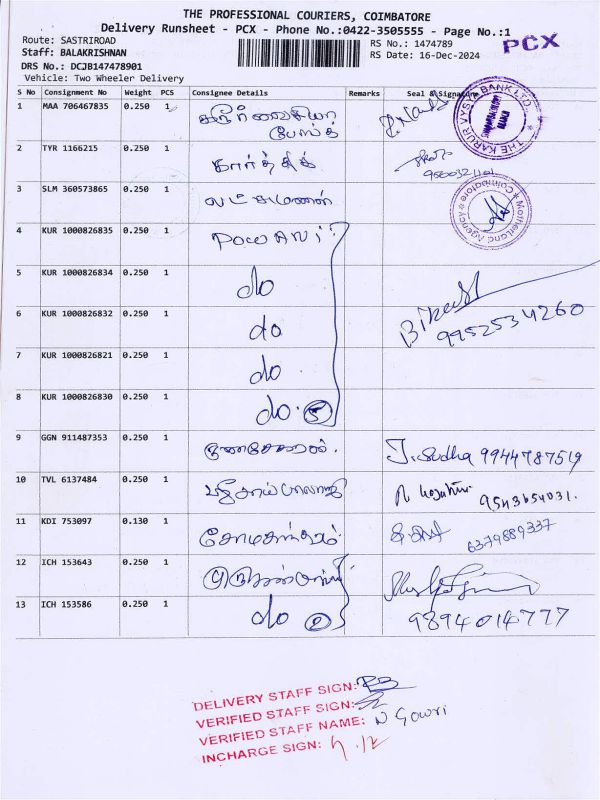 THE PROFESSIONAL COURIERS, COIMBATORE
Delivery Runsheet - PCX - Phone No.:0422-3505555 - Page No.:1
Route: SASTRIROAD
RS No.: 1474789
PCX
Staff: BALAKRISHNAN
RS Date: 16-Dec-2024
DRS No.: DCJB147478901
Vehicle: Two Wheeler Delivery
S No Consignment No Weight PCS Consignee Details Remarks Seal & Signature
1 MAA 706467835 0.250 1 கரூர் வைசியா
THE KARUR VYSYA BANK LTD.,
2 TYR 1166215 0.250 1 கார்த்திக்
3 SLM 360573865 0.250 1 லட்சுமணன்
MotherLand Agency Coimbatore
4 KUR 1000826835 0.250 1
5 KUR 1000826834 0.250 1 do
6 KUR 1000826832 0.250 1 do
9952534260
7 KUR 1000826821 0.250 1 do
8 KUR 1000826830 0.250 1 do. 5
9 GGN 911487353 0.250 1 குணசேகரன். J. Sudha 9944787519
10 TVL 6137484 0.250 1 9543654031.
11 KDI 753097 0.130 1 6379889337
12 ICH 153643 0.250 1
13 ICH 153586 0.250 1 do 2 9894014777
DELIVERY STAFF SIGN:
VERIFIED STAFF SIGN:
VERIFIED STAFF NAME: N Gowri
INCHARGE SIGN: